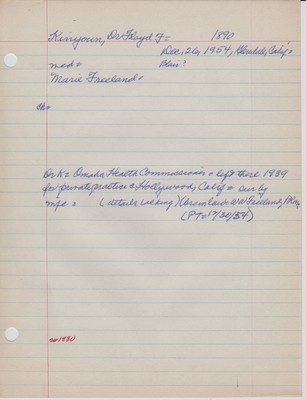 Kinyoun, Dr Floyd F= 1890
Dec, 26, 1954, Glendale, Calif
med=
Marie Freeland=
ch=
Dr K= Omaha Health Commissioner = left there 1939
for private practice @ Hollywood, Calif = sur by
wife = (details lacking) (Brom law= W W Freeland, Kay
(PT= 12/30/54)
no 1930